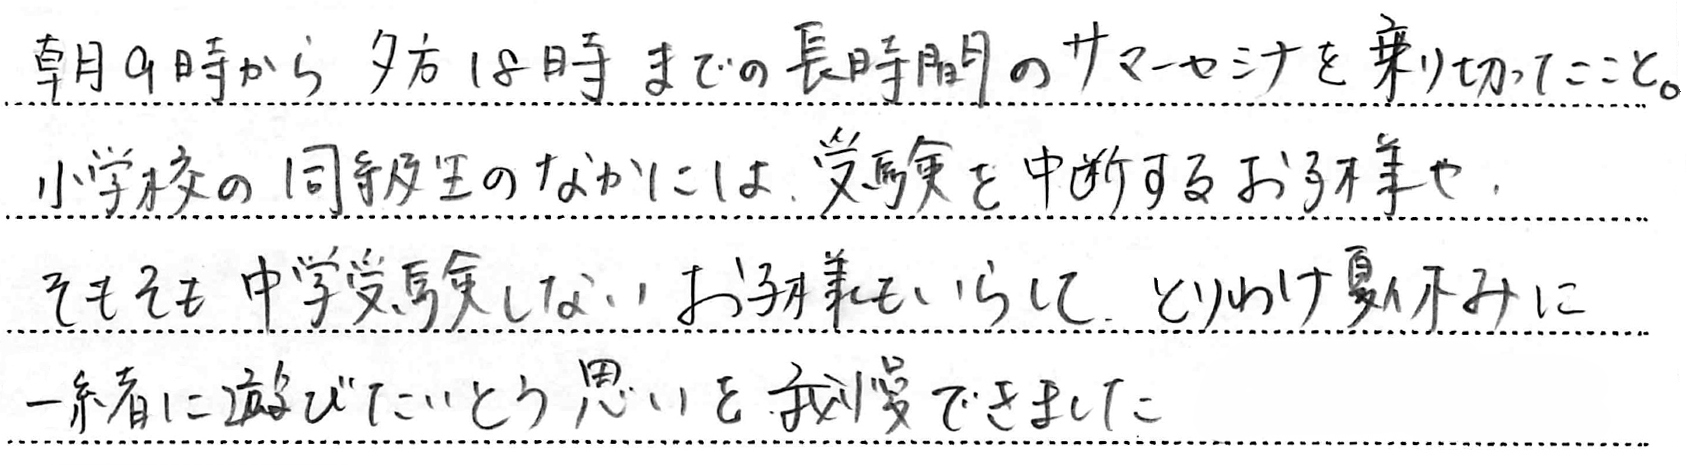 朝9時から夕方18時までの長時間のサマーセミナを乗り切ったこと。
小学校の同級生のなかには、受験を中断するお子様や、
そもそも中学受験しないお子様もいらして、とりわけ夏休みに
一緒に遊びたいとう思いを我慢できました